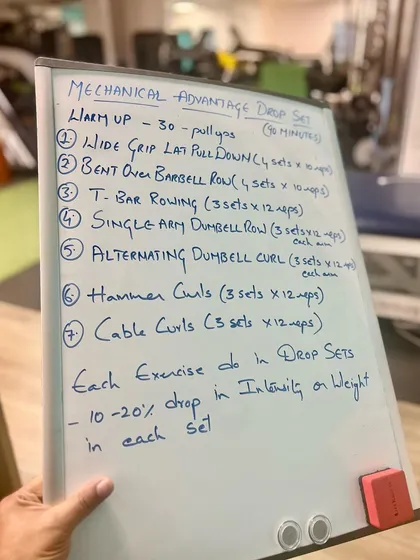 MECHANICAL ADVANTAGE DROP SET
WARM UP - 30 - pullups (90 MINUTES)
1. WIDE GRIP LAT PULL DOWN (4 sets x 10 reps)
2. BENT OVER BARBELL ROW (4 sets x 10 reps)
3. T-BAR ROWING (3 sets x 12 reps)
4. SINGLE ARM DUMBELL ROW (3 sets x 12 reps)
each arm
5. ALTERNATING DUMBELL CURL (3 sets x 12 reps)
each arm
6. Hammer Curls (3 sets x 12 reps)
7. Cable Curls (3 sets x 12 reps)
Each Exercise do in DROP SETS
- 10-20% drop in Intensity or Weight
in each set